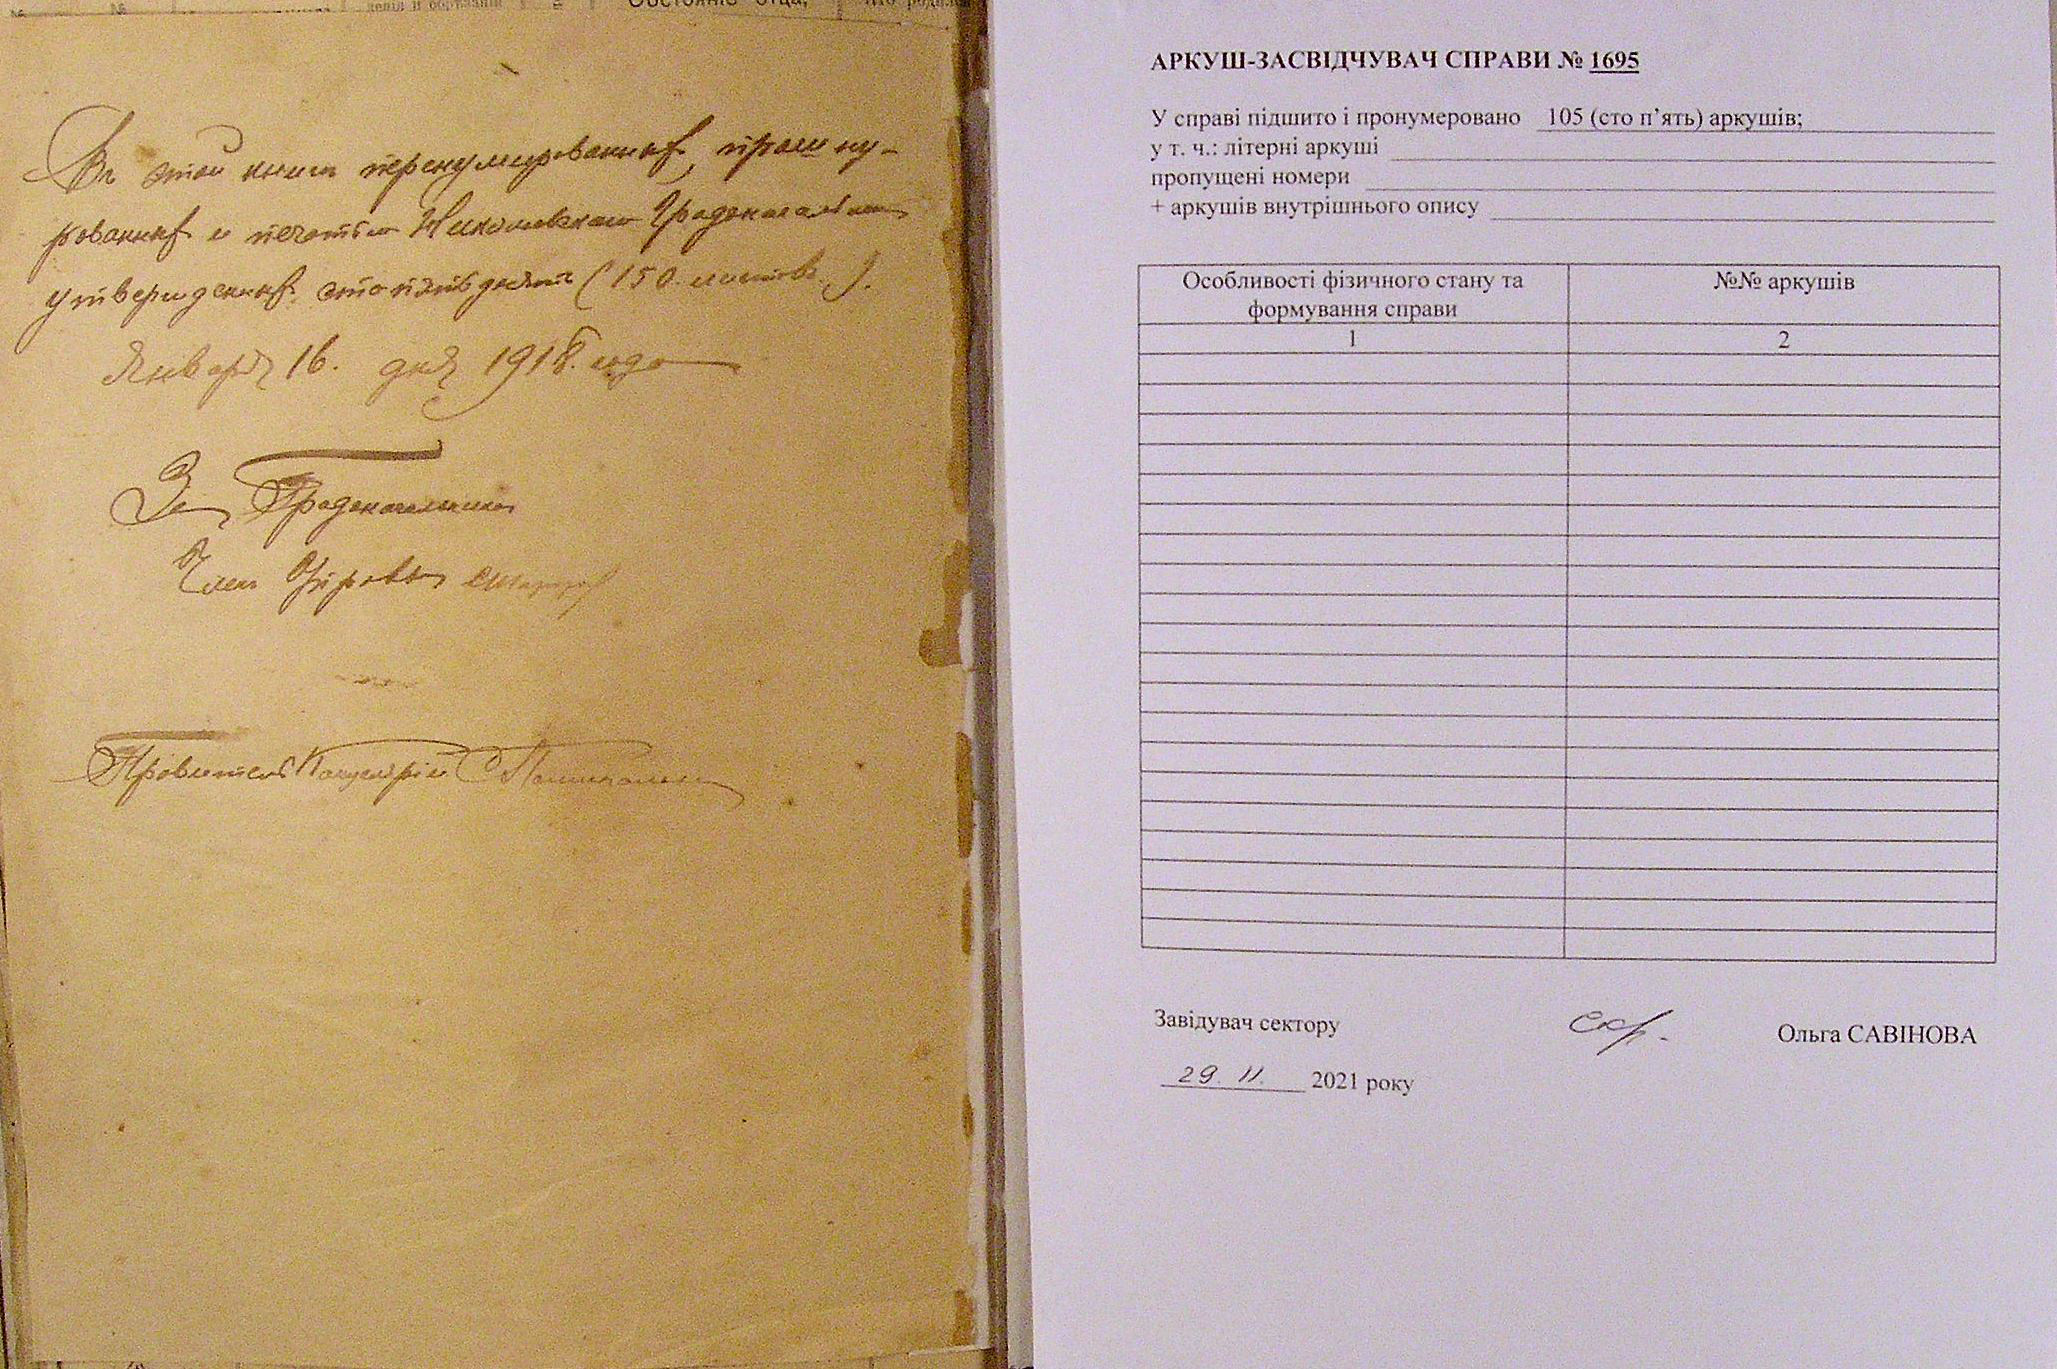 Состояніе отца,
Въ этой книгѣ перенумерованныхъ, прошну-
рованныхъ и печатью Николаевскаго Градоначальника
утвержденныхъ сто пятьдесятъ (150 листовъ).
Января 16. дня 1918. года
За Градоначальника
Членъ Управы
Правитель Канцеляріи
АРКУШ-ЗАСВІДЧУВАЧ СПРАВИ № 1695
У справі підшито і пронумеровано 105 (сто п’ять) аркушів;
у т. ч.: літерні аркуші
пропущені номери
+ аркушів внутрішнього опису
Особливості фізичного стану та
формування справи
№№ аркушів
1 2
Завідувач сектору Ольга САВІНОВА
29. 11. 2021 року